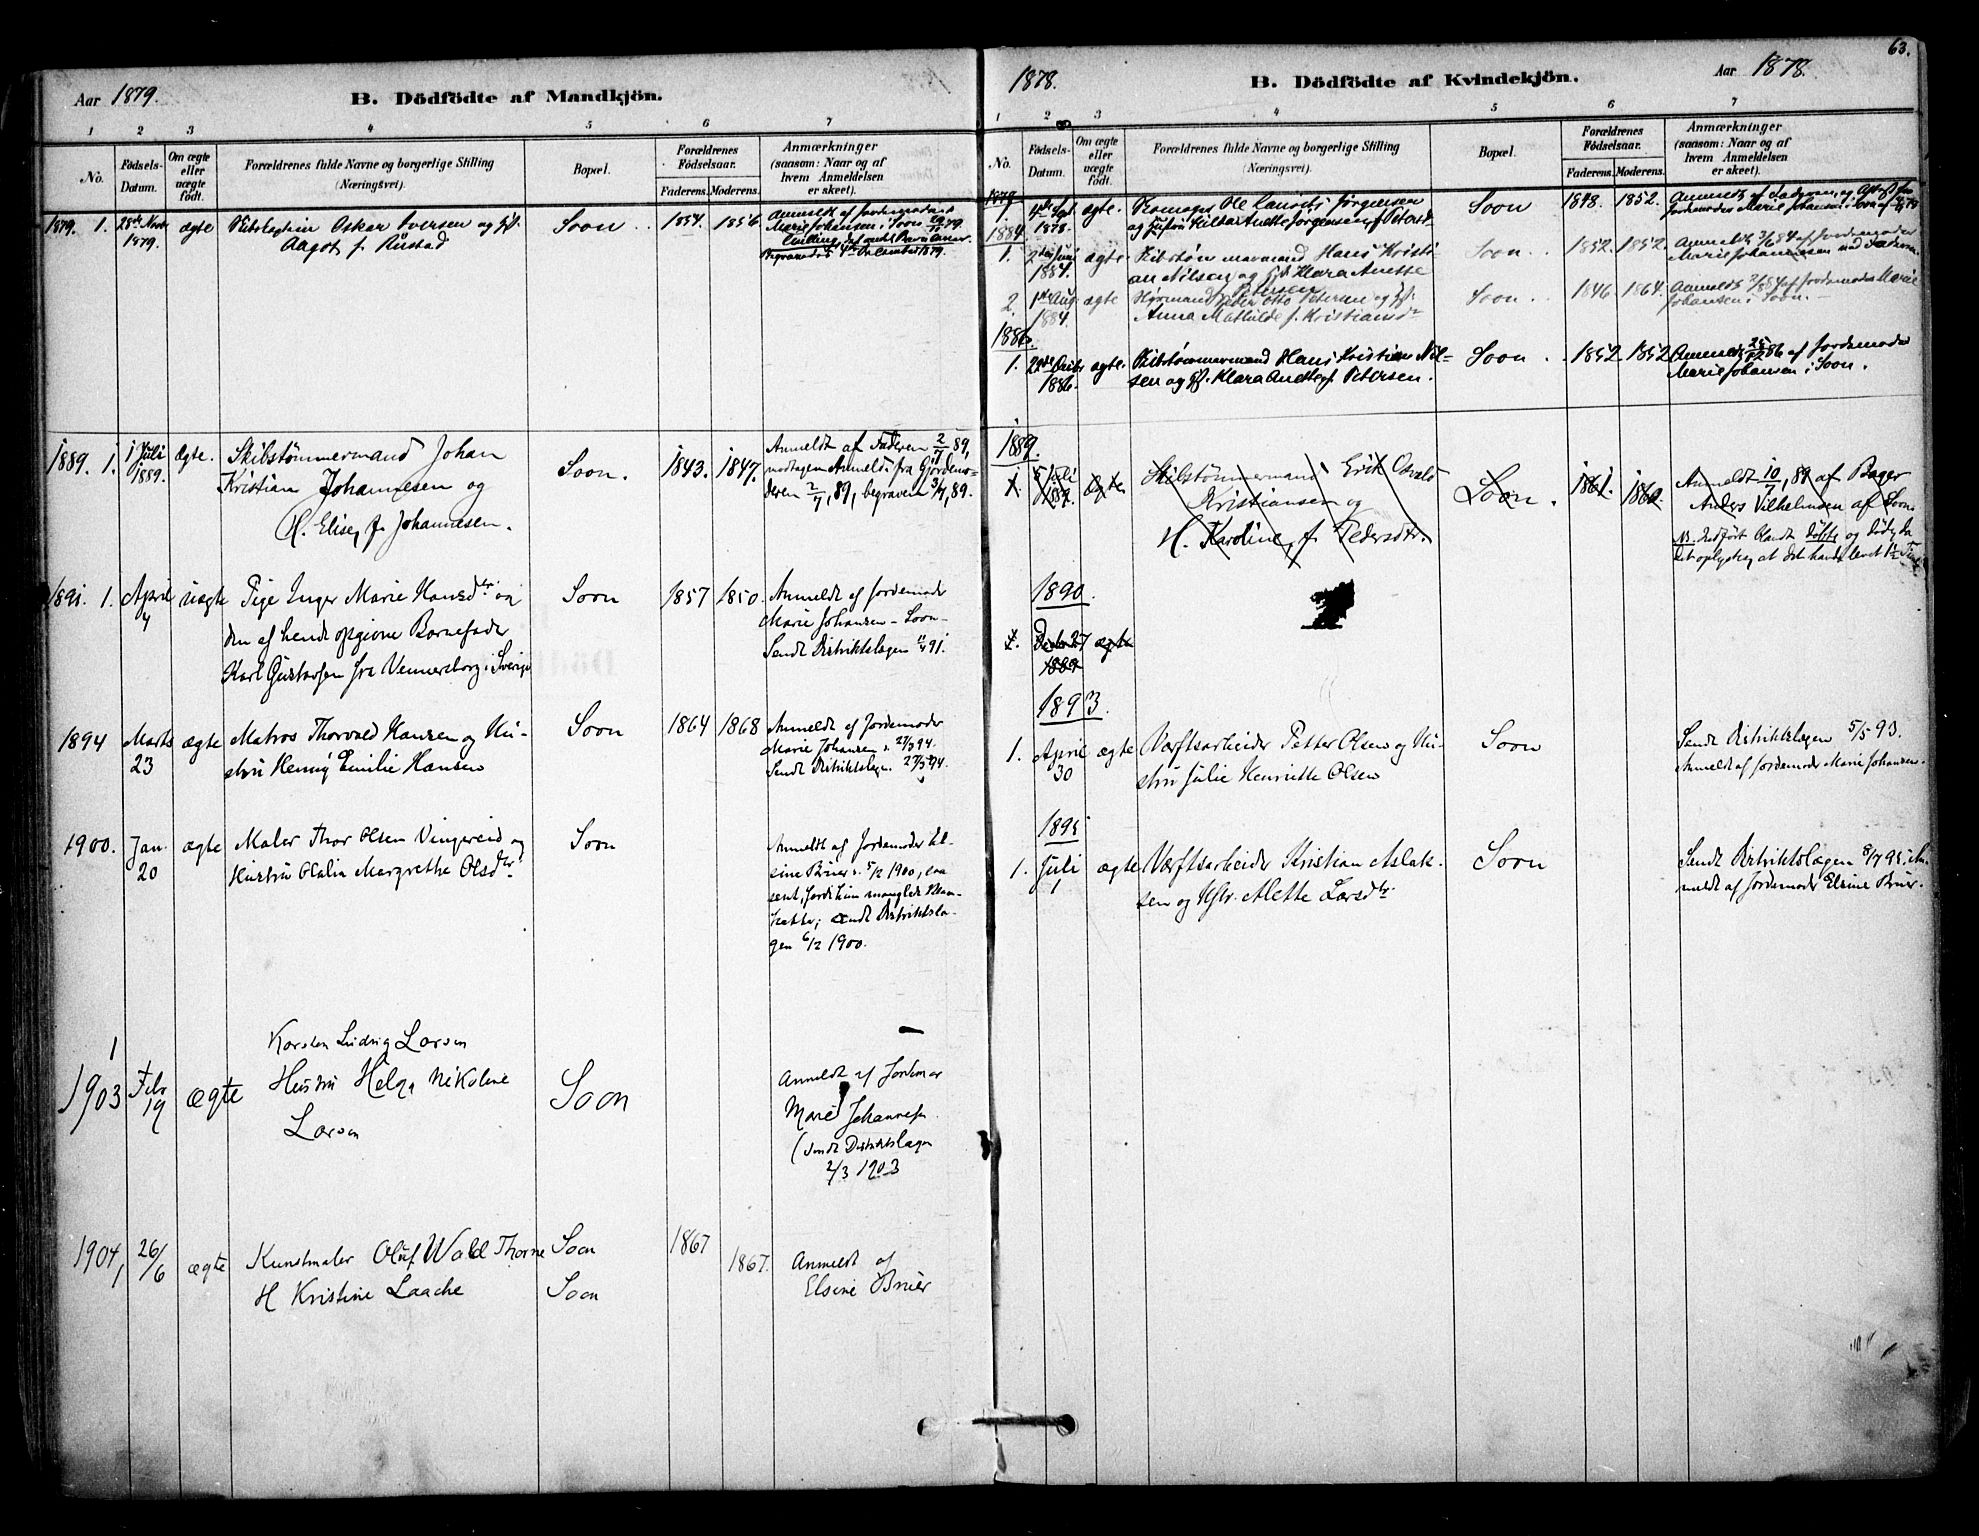 Aar 1879.
B. Dödfödte af Mandkjön.
1 2 3 4 5 6 7
No.
Födsels-Datum.
Om ægte eller uægte födt.
Forældrenes fulde Navne og borgerlige Stilling (Næringsvei).
Bopæl.
Forældrenes Födselsaar.
Faderens. Moderens.
Anmærkninger (saasom: Naar og af hvem Anmeldelsen er skeet).
1879. 1. 28de Novbr 1879. ægte
Oskar Iversen og
Aagot f. Rustad
Soon 1854. 1856.
Anmeldt af Jordemoder
Marie Johansen i Soon
Begravedes 4de December 1879.
1889. 1. 1 Juli 1889. Ægte.
Skibstømmermand Johan
Kristian Johannesen og
H. Elise, f. Johannesen.
Soon. 1843. 1847.
Anmeldt af Faderen 2/7 89,
modtagen Anmeld. fra Gjordemo-
deren 2/7, 89, begraven 3/7, 89.
1891. 1. April 4 uægte
Pige Inger Marie Hansdtr og
den af hende opgivne Barnefader
Karl Gustavsen fra Vennersborg i Sverige
Soon 1857 1850.
Anmeldt af Jordemoder
Marie Johansen - Soon -
Sendt Distriktslægen 11/4 91.
1894 Marts 23 ægte
Matros Thorvald Hansen og Hu-
stru Henny Emilie Hansen
Soon 1864 1868
Anmeldt af Jordemoder
Marie Johansen 27/3 94.
Sendt Distriktslægen 27/3 94.
1900. Jan. 20 ægte
Maler Thor Olsen Vingereid og
Hustru Olalia Margrethe Olsdtr
Soon
Anmeldt af Jordemoder El-
sine Brüer 5/2 1900, saa
sent, fordi hun manglede Blan-
ketter; sendt Distriktslæ-
gen 6/2 1900.
1
1903 Feb 19 ægte
Karsten Ludvig Larsen
Hustru Helga Nikoline
Larsen
Soon
Anmeldt af Jordmor
Marie Johannesen
(sendt Distriktslægen
2/3 1903
1904 1 26/6 ægte
Kunstmaler Oluf Wold Thorne
H Kristine Laache
Soon
Soon
1867 1867.
Anmeldt af
Elsine Brüer
63.
1878.
B. Dödfödte af Kvindekjön.
Aar 1878.
1 2 3 4 5 6 7
No.
Födsels-Datum.
Om ægte eller uægte födt.
Forældrenes fulde Navne og borgerlige Stilling (Næringsvei).
Bopæl.
Forældrenes Födselsaar.
Faderens. Moderens.
Anmærkninger (saasom: Naar og af hvem Anmeldelsen er skeet).
1. 1878. ægte.
Ole Jörgensen
Soon 1848. 1852.
1884.
1. 2den Juni 1884. ægte
Skibstømmermand Hans Kristi-
an Nilsen og Hst. Klara Anette
Petersen
Soon. 1852. 1852.
Anmeldt 3/6 84 af Jordemoder
Marie Johannesen
2. 1ste Aug 1884. ægte
Peder Otto Petersen og Hst.
Anna Mathilde f. Kristiansdtr
Soon. 1846. 1864.
Anmeldt 2/8 84 af Jordemoder Marie
Johansen i Soon.
1886.
1. 1886. ægte.
Skibstømmermand Hans Kristian Nil-
sen og Hst. Klara Anette f. Petersen.
Soon. 1852 1852
Anmeldt af Jordemoder
Marie Johansen i Soon.
1889.
1. 8 Juli 1889. Ægte
Skibstømmermand Erik Osvald
Kristiansen og
H. Karoline, f. Pedersdtr.
Soon. 1861. 1862.
Anmeldt 10/7, 89 af Bager
Anders Vilhelmsen af Soon.
NB. Indført blandt døbte og døde, da
det oplystes, at det havde levet
1890.
1. Decbr 27 1889 ægte
1893.
1. April 30 ægte
Værftsarbeider Petter Olsen og Hu-
stru Julie Henriette Olsen
Soon
Sendt Distriktslægen 5/5 93.
Anmeldt af Jordemoder Marie Johansen.
1895
1. Juli 1 ægte
Værftsarbeider Kristian Aslak-
sen og Hstr. Alette Larsdtr.
Soon
Sendt Distriktslægen 8/7 95, An-
meldt af Jordemoder Elsine Brüer.